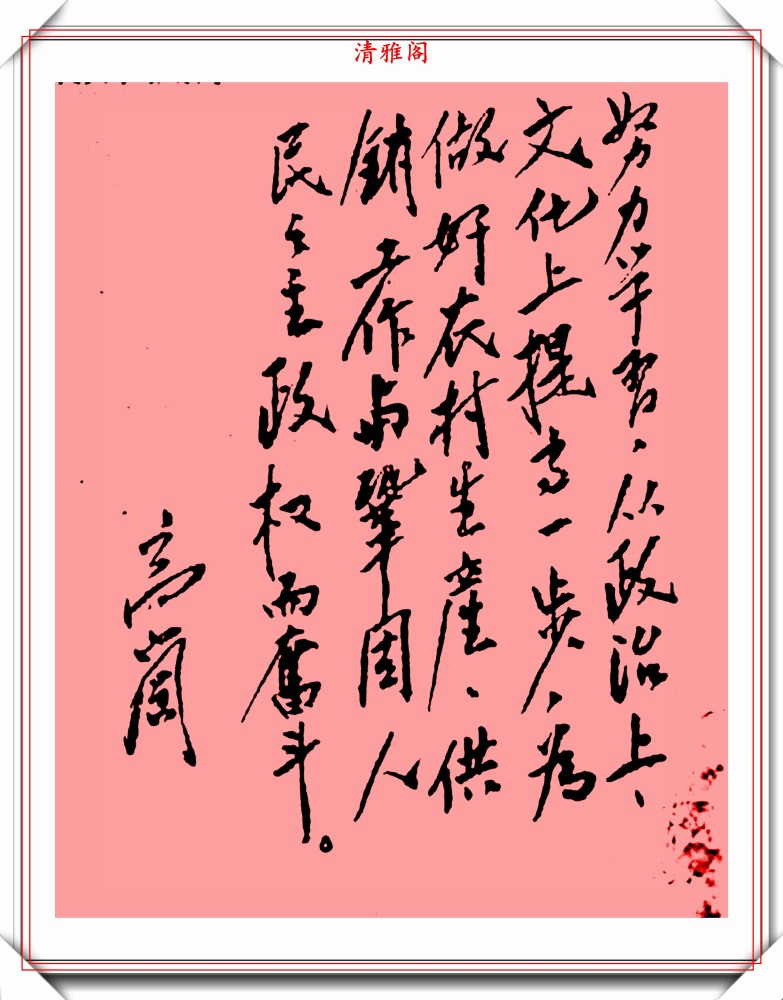 清雅阁
努力学習、从政治上、
文化上提高一步、為
做好农村生產、供
銷工作与鞏固人
民々主政权而奮斗。
高崗